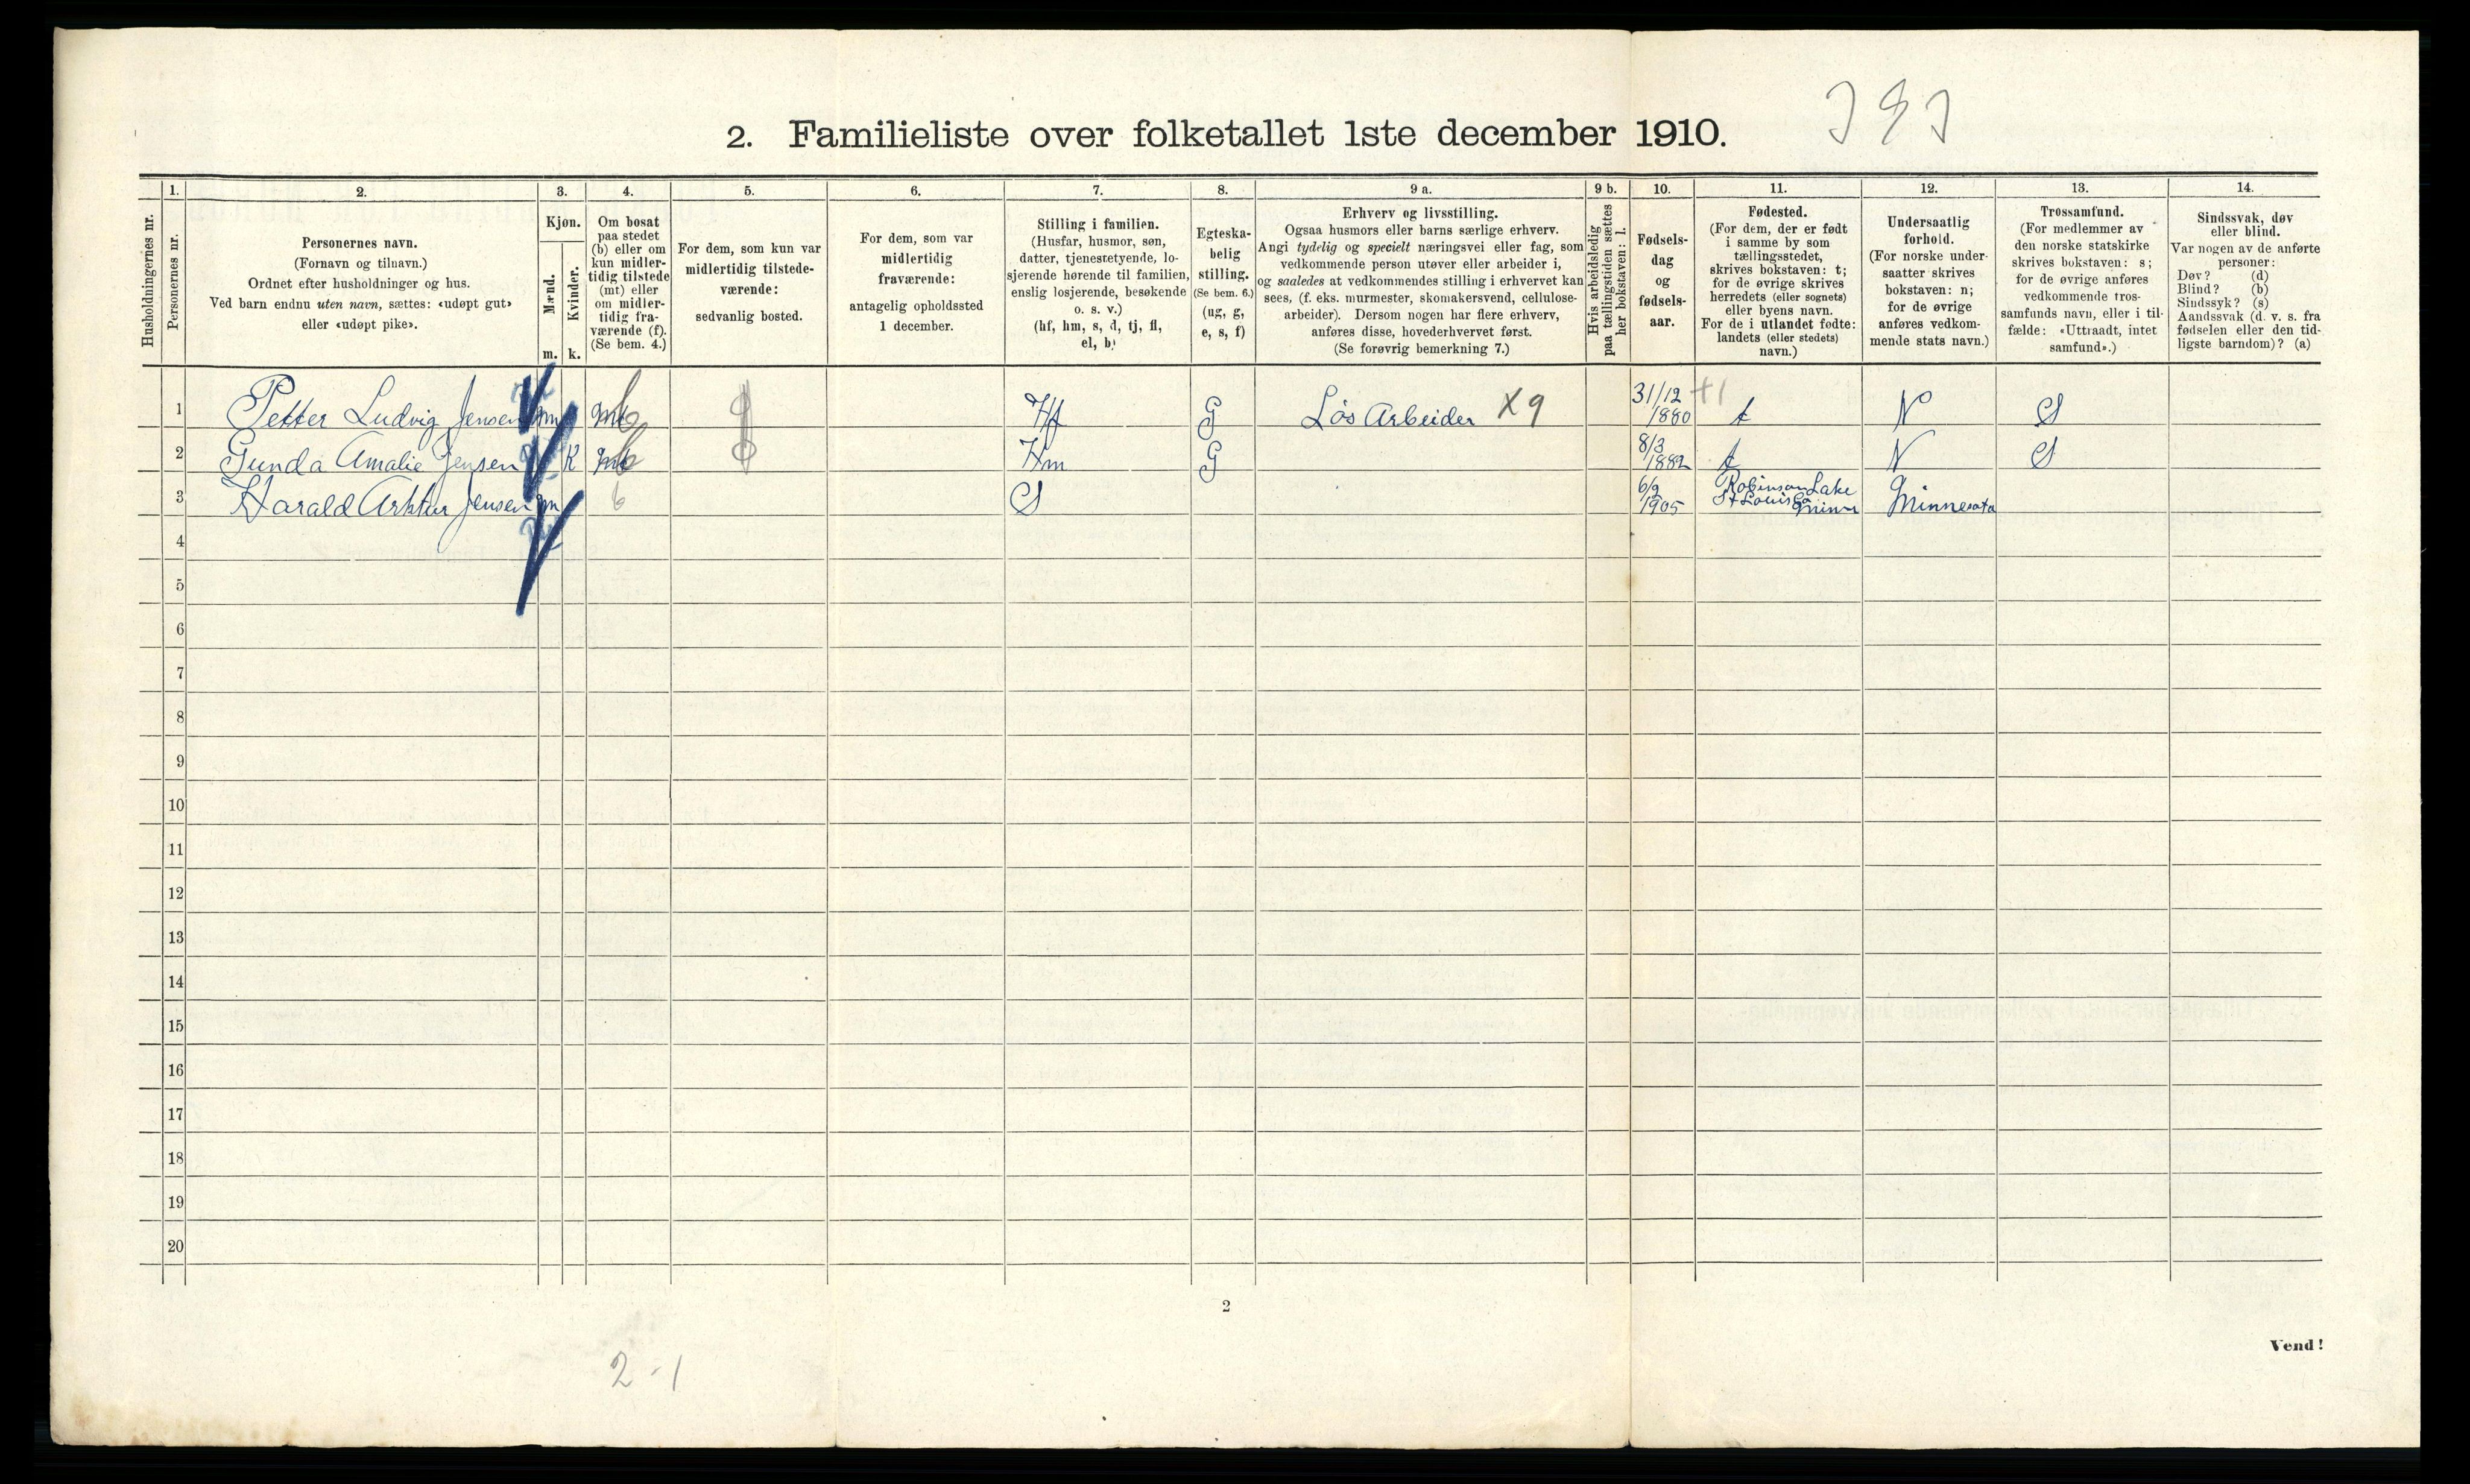 2. Familieliste over folketallet 1ste december 1910.
Husholdningernes nr.
1.
Personernes nr.
2.
Personernes navn.
(Fornavn og tilnavn.)
Ordnet efter husholdninger og hus.
Ved barn endnu uten navn, sættes: «udøpt gut»
eller «udøpt pike».
3.
Kjøn.
Mænd.
m.
Kvinder.
k.
4.
Om bosat
paa stedet
(b) eller om
kun midler-
tidig tilstede
(mt) eller
om midler-
tidig fra-
værende (f).
(Se bem. 4.)
5.
For dem, som kun var
midlertidig tilstede-
værende:
sedvanlig bosted.
6.
For dem, som var
midlertidig
fraværende:
antagelig opholdssted
1 december.
7.
Stilling i familien.
(Husfar, husmor, søn,
datter, tjenestetyende, lo-
sjerende hørende til familien,
enslig losjerende, besøkende
o. s. v.)
(hf, hm, s, d, tj, fl,
el, b)
8.
Egteska-
belig
stilling.
(Se bem. 6.)
(ug, g,
e, s, f)
9 a.
Erhverv og livsstilling.
Ogsaa husmors eller barns særlige erhverv.
Angi tydelig og specielt næringsvei eller fag, som
vedkommende person utøver eller arbeider i,
og saaledes at vedkommendes stilling i erhvervet kan
sees, (f. eks. murmester, skomakersvend, cellulose-
arbeider). Dersom nogen har flere erhverv,
anføres disse, hovederhvervet først.
(Se forøvrig bemerkning 7.)
9 b.
Hvis arbeidsledig
paa tællingstiden sættes
her bokstaven: l.
10.
Fødsels-
dag
og
fødsels-
aar.
11.
Fødested.
(For dem, der er født
i samme by som
tællingsstedet,
skrives bokstaven: t;
for de øvrige skrives
herredets (eller sognets)
eller byens navn.
For de i utlandet fødte:
landets (eller stedets)
navn.)
12.
Undersaatlig
forhold.
(For norske under-
saatter skrives
bokstaven: n;
for de øvrige
anføres vedkom-
mende stats navn.)
13.
Trossamfund.
(For medlemmer av
den norske statskirke
skrives bokstaven: s;
for de øvrige anføres
vedkommende tros-
samfunds navn, eller i til-
fælde: «Uttraadt, intet
samfund».)
14.
Sindssvak, døv
eller blind.
Var nogen av de anførte
personer:
Døv? (d)
Blind? (b)
Sindssyk? (s)
Aandssvak (d. v. s. fra
fødselen eller den tid-
ligste barndom)? (a)
1 Petter Ludvig Jensen m Mt b Hf G Løs Arbeider X9 31/12 1880 +1 t N S
2 Gunda Amalie Jensen K Mt b Hm G 8/3 1882 t N S
3 Harald Arthur Jensen m b S 6/9 1905 Robinson Lake St Louis Co Minn Minnesota
4
5
6
7
8
9
10
11
12
13
14
15
16
17
18
19
20
2
Vend!
2-1